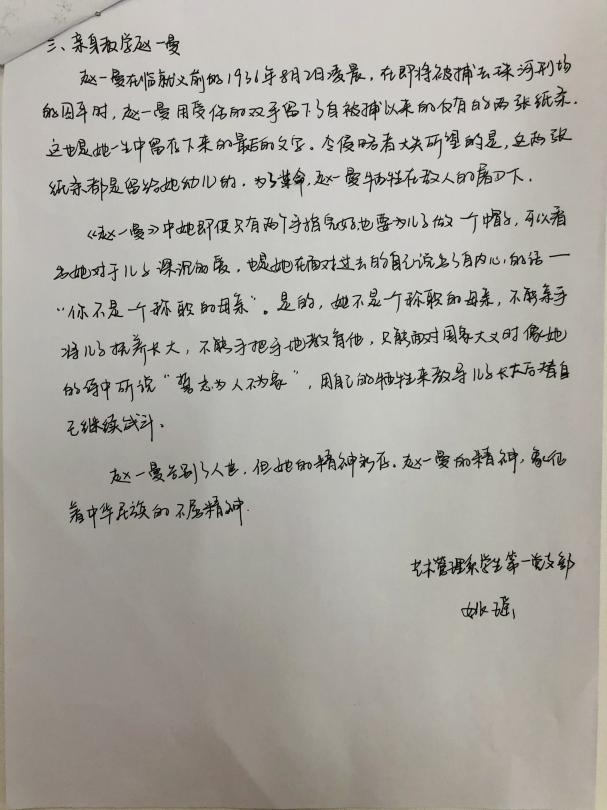 三、亲身教学赵一曼
赵一曼在临就义前的1936年8月2日凌晨，在即将被捕去珠河刑场
的囚车时，赵一曼用受伤的双手留下了自被捕以来的仅有的两张纸条.
这也是她一生中留存下来的最后的文字。令侵略者大失所望的是，这两张
纸条都是留给她幼儿的，为了革命，赵一曼牺牲在敌人的屠刀下.
《赵一曼》中她即便只有两个手指完好也要为儿子做一个帽子，可以看
出她对于儿子深沉的爱，也是她在面对过去的自己说出了自内心的话—
“你不是一个称职的母亲”。是的，她不是一个称职的母亲，不能亲手
将儿子抚养长大，不能手把手地教育他，只能面对国家大义时像她
的诗中所说“誓志为人不为家”，用自己的牺牲来教导儿子长大后替自
己继续战斗。
赵一曼告别了人世，但她的精神永存。赵一曼的精神，象征
着中华民族的不屈精神.
艺术管理系学生第一党支部
姚瑶